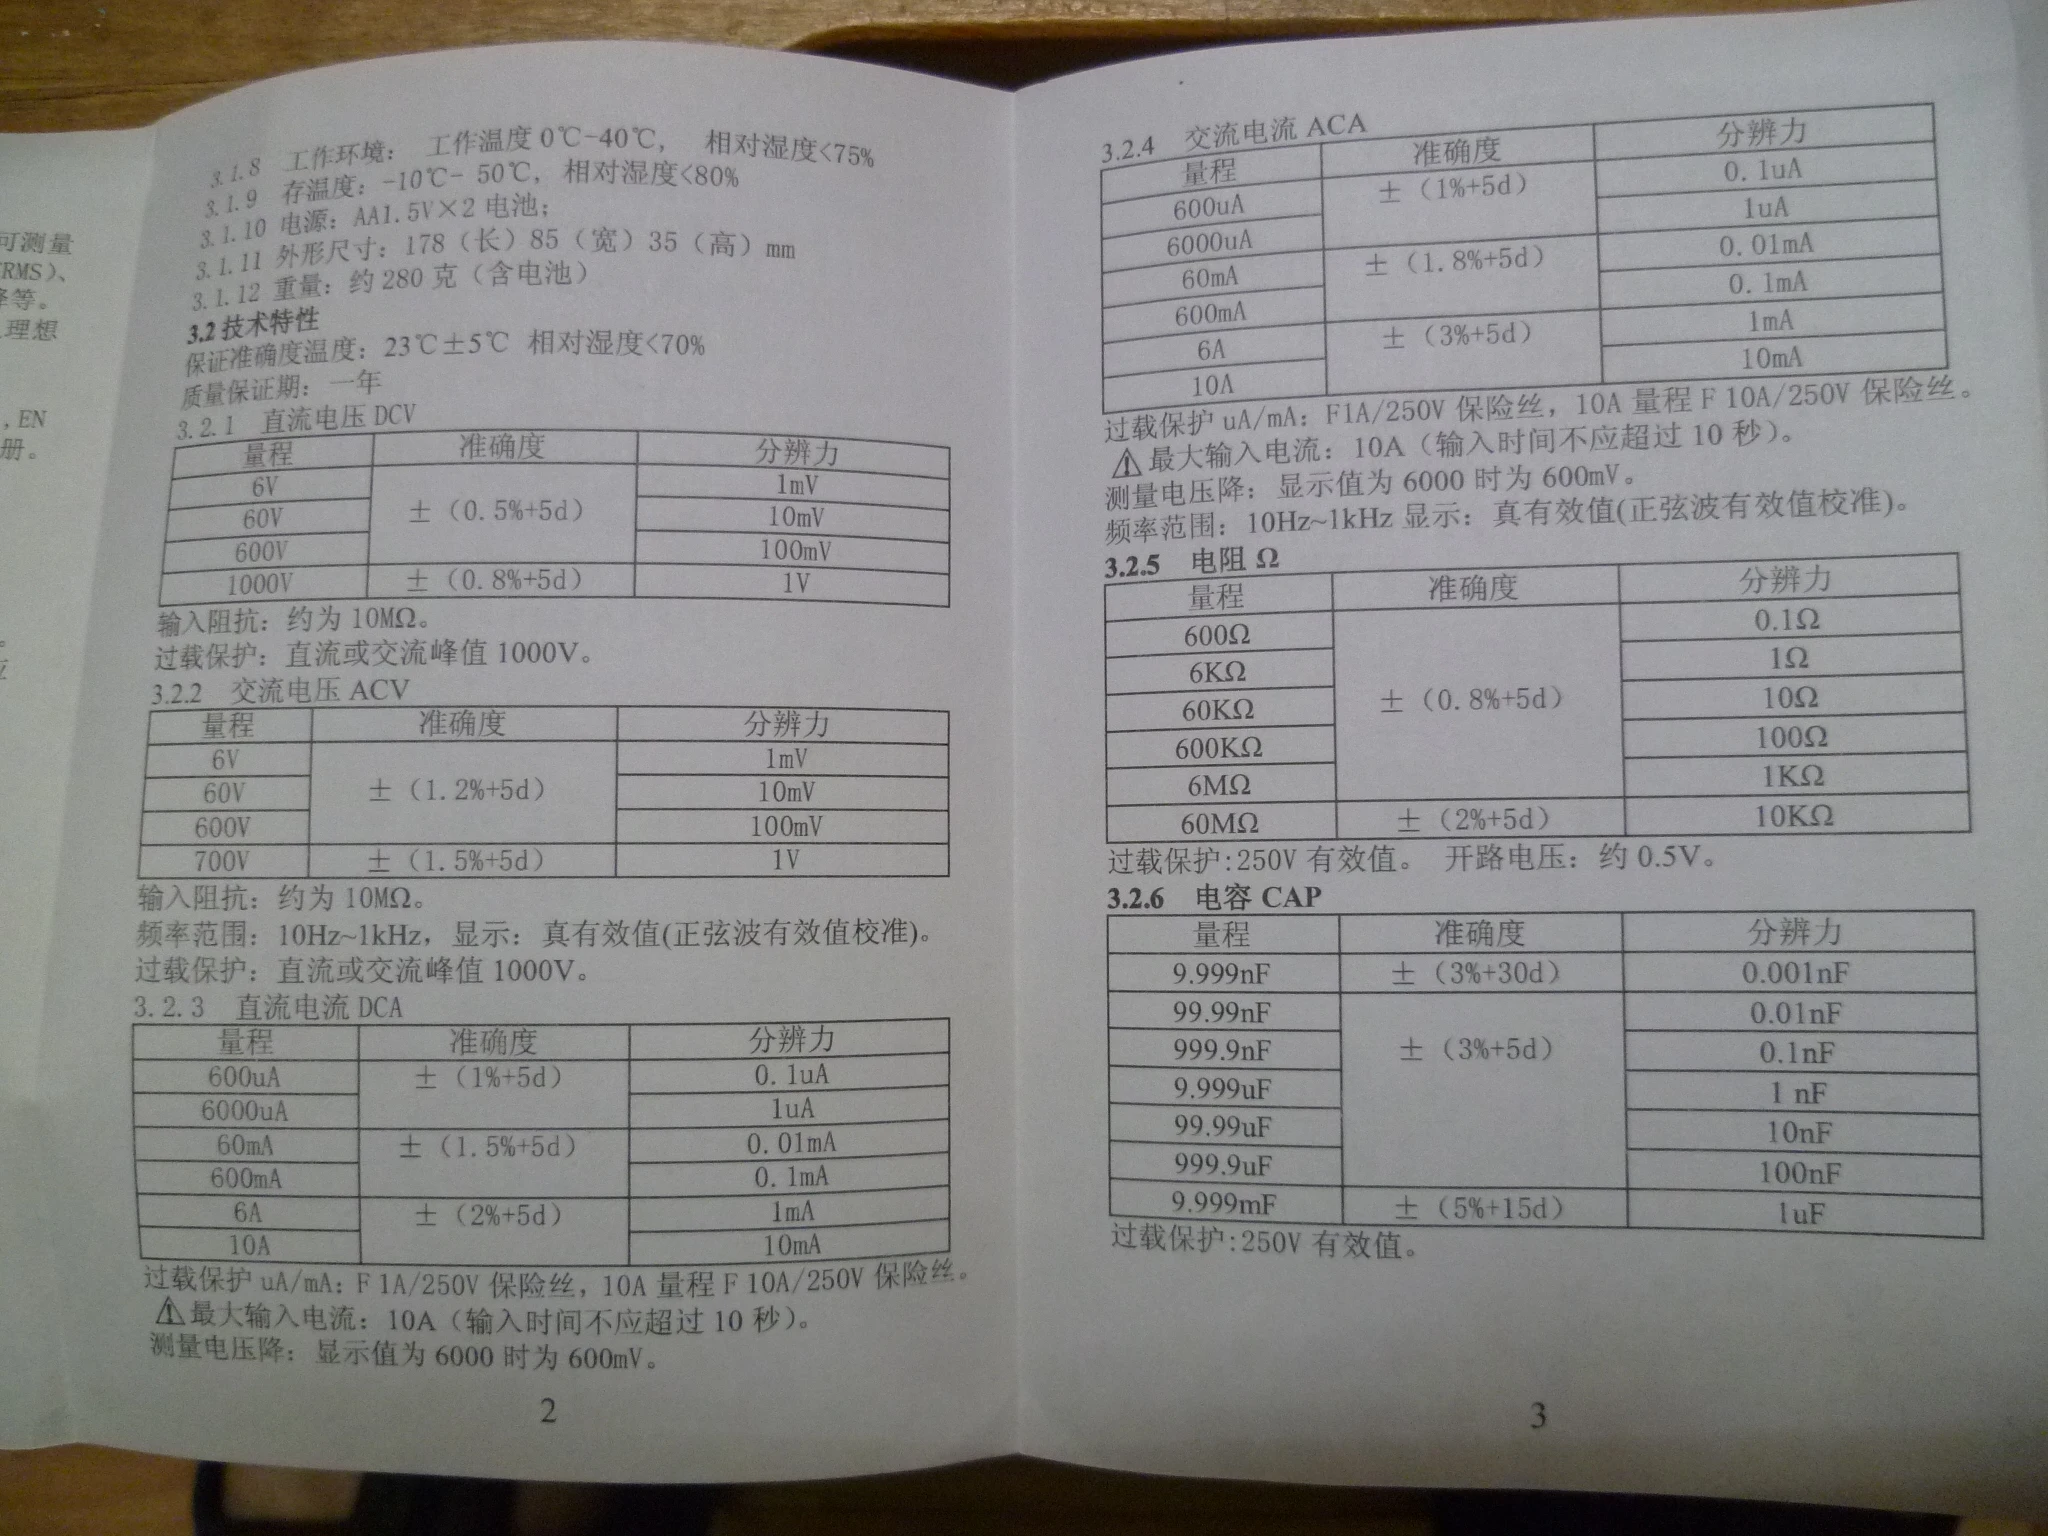 可测量
RMS)、
等。
理想
,EN
册。
3.1.8 工作环境： 工作温度 0℃-40℃， 相对湿度<75%
3.1.9 存温度：-10℃- 50℃，相对湿度<80%
3.1.10 电源：AA1.5V×2 电池；
3.1.11 外形尺寸：178（长）85（宽）35（高）mm
3.1.12 重量：约 280 克（含电池）
3.2 技术特性
保证准确度温度：23℃±5℃ 相对湿度<70%
质量保证期：一年
3.2.1 直流电压 DCV
量程 准确度 分辨力
6V ±（0.5%+5d） 1mV
60V 10mV
600V 100mV
1000V ±（0.8%+5d） 1V
输入阻抗：约为 10MΩ。
过载保护：直流或交流峰值 1000V。
3.2.2 交流电压 ACV
量程 准确度 分辨力
6V ±（1.2%+5d） 1mV
60V 10mV
600V 100mV
700V ±（1.5%+5d） 1V
输入阻抗：约为 10MΩ。
频率范围：10Hz~1kHz，显示：真有效值(正弦波有效值校准)。
过载保护：直流或交流峰值 1000V。
3.2.3 直流电流 DCA
量程 准确度 分辨力
600uA ±（1%+5d） 0.1uA
6000uA 1uA
60mA ±（1.5%+5d） 0.01mA
600mA 0.1mA
6A ±（2%+5d） 1mA
10A 10mA
过载保护 uA/mA：F 1A/250V 保险丝，10A 量程 F 10A/250V 保险丝。
⚠最大输入电流：10A（输入时间不应超过 10 秒）。
测量电压降：显示值为 6000 时为 600mV。
2
3.2.4 交流电流 ACA
量程 准确度 分辨力
600uA ±（1%+5d） 0.1uA
6000uA 1uA
60mA ±（1.8%+5d） 0.01mA
600mA 0.1mA
6A ±（3%+5d） 1mA
10A 10mA
过载保护 uA/mA：F1A/250V 保险丝，10A 量程 F 10A/250V 保险丝。
⚠最大输入电流：10A（输入时间不应超过 10 秒）。
测量电压降：显示值为 6000 时为 600mV。
频率范围：10Hz~1kHz 显示：真有效值(正弦波有效值校准)。
3.2.5 电阻 Ω
量程 准确度 分辨力
600Ω ±（0.8%+5d） 0.1Ω
6KΩ 1Ω
60KΩ 10Ω
600KΩ 100Ω
6MΩ 1KΩ
60MΩ ±（2%+5d） 10KΩ
过载保护:250V 有效值。 开路电压：约 0.5V。
3.2.6 电容 CAP
量程 准确度 分辨力
9.999nF ±（3%+30d） 0.001nF
99.99nF ±（3%+5d） 0.01nF
999.9nF 0.1nF
9.999uF 1 nF
99.99uF 10nF
999.9uF 100nF
9.999mF ±（5%+15d） 1uF
过载保护:250V 有效值。
3